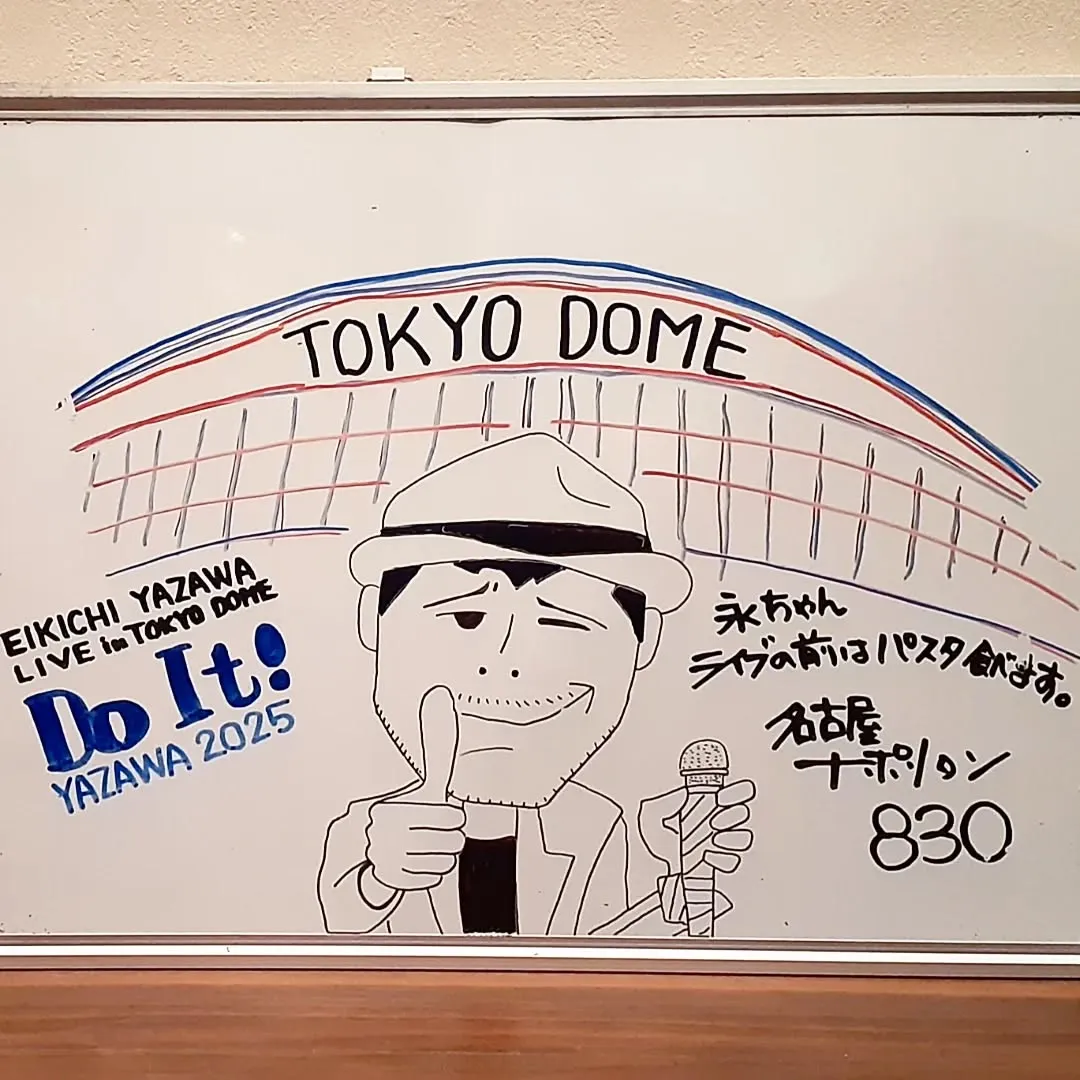 TOKYO DOME
EIKICHI YAZAWA
LIVE in TOKYO DOME
Do It!
YAZAWA 2025
永ちゃん
ライブの前はパスタ食べます。
名古屋
ナポリタン
830